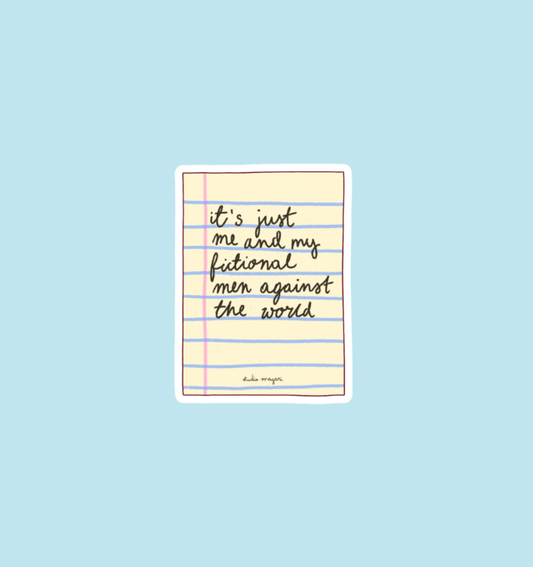 it's just
me and my
fictional
men against
the world
studio magari